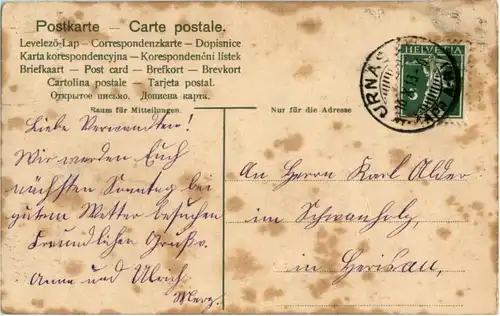 Postkarte — Carte postale.
Levelező-Lap — Correspondenzkarte — Dopisnice
Karta korespondencyjna — Korespondenční lístek
Briefkaart — Post card — Brefkort — Brevkort
Cartolina postale — Tarjeta postal.
Открытое письмо. Дописна карта.
Raum für Mitteilungen
Nur für die Adresse
HELVETIA
URNÄS
Liebe Verwandten!
Wir werden Euch
nächsten Sonntag bei
gutem Wetter besuchen
Freundlichen Gruß.
Anna und Ulrich
Merz.
An Herrn Karl Alder
im Schwanholz,
in Herisau,